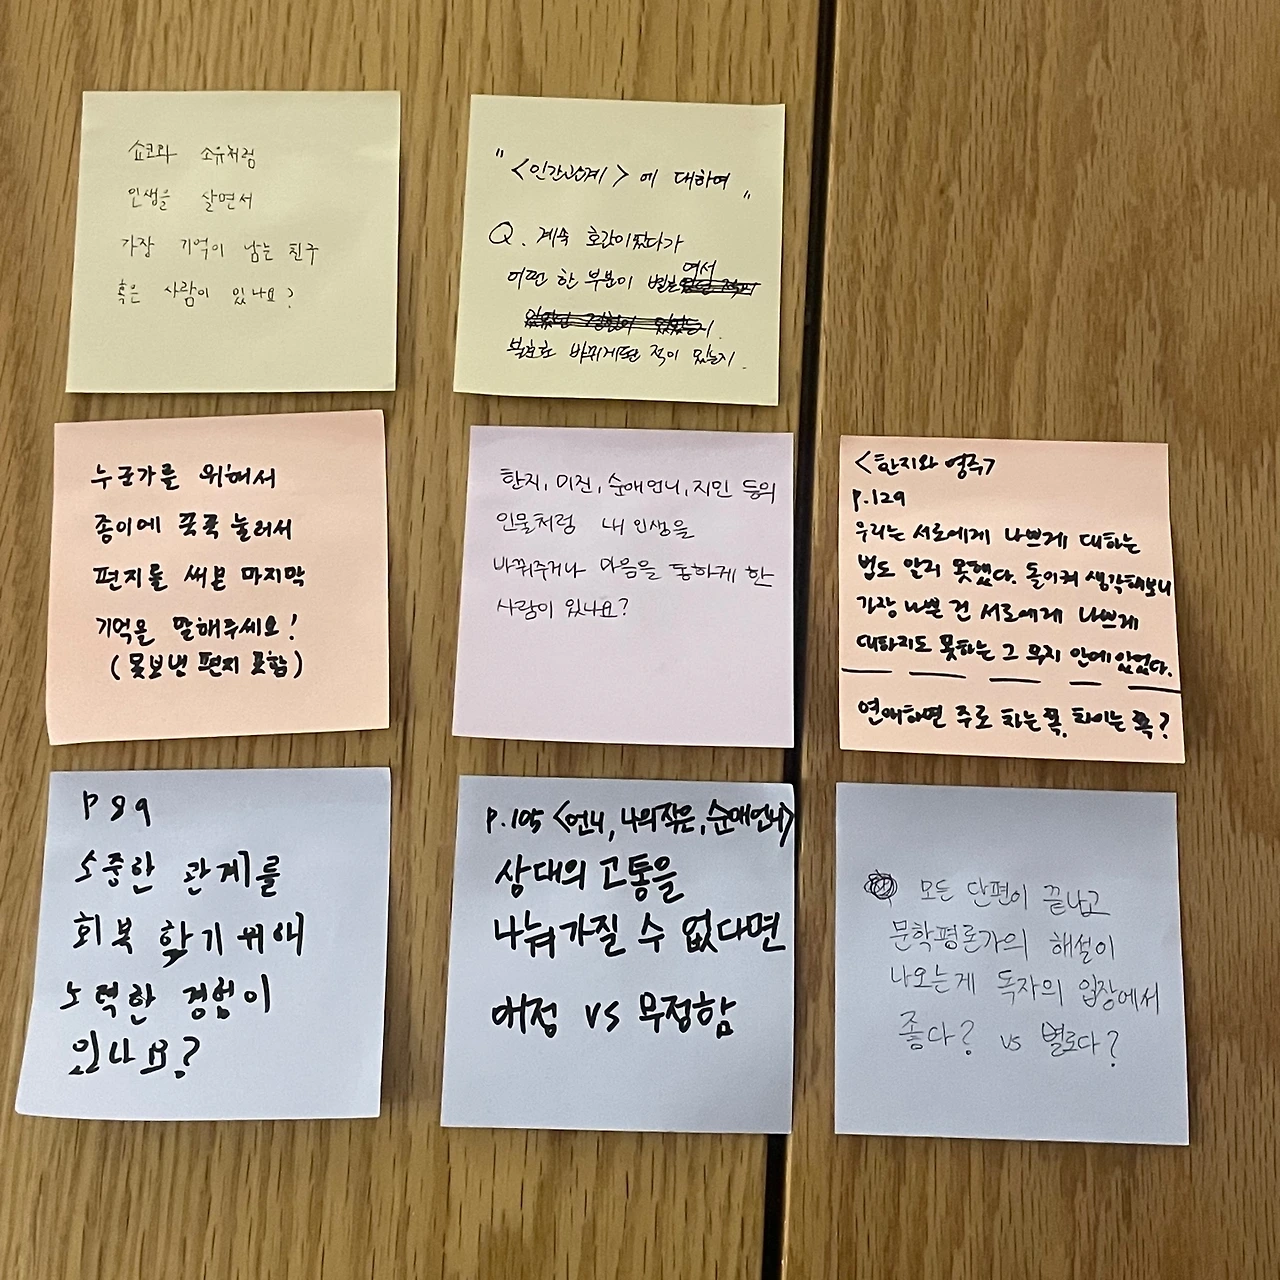 쇼코와 소유처럼
인생을 살면서
가장 기억이 남는 친구
혹은 사람이 있나요?
" <인간관계> 에 대하여 "
Q. 계속 호감이었다가
어떤 한 부분이 별로여서
불호로 바뀌게된 적이 있는지.
누군가를 위해서
종이에 꾹꾹 눌러서
편지를 써본 마지막
기억을 말해주세요!
(못보낸 편지 포함)
한지, 미진, 순애언니, 지민 등의
인물처럼 내 인생을
바꿔주거나 마음을 통하게 한
사람이 있나요?
<한지와 영주>
P.129
우리는 서로에게 나쁘게 대하는
법도 알지 못했다. 돌이켜 생각해보니
가장 나쁜 건 서로에게 나쁘게
대하지도 못하는 그 무지 안에 있었다.
연애하면 주로 차는 쪽, 차이는 쪽?
P 89
소중한 관계를
회복 하기 위해
노력한 경험이
있나요?
P.105 <언니, 나의작은, 순애언니>
상대의 고통을
나눠가질 수 없다면
애정 vs 무정함
모든 단편이 끝나고
문학평론가의 해설이
나오는게 독자의 입장에서
좋다? vs 별로다?